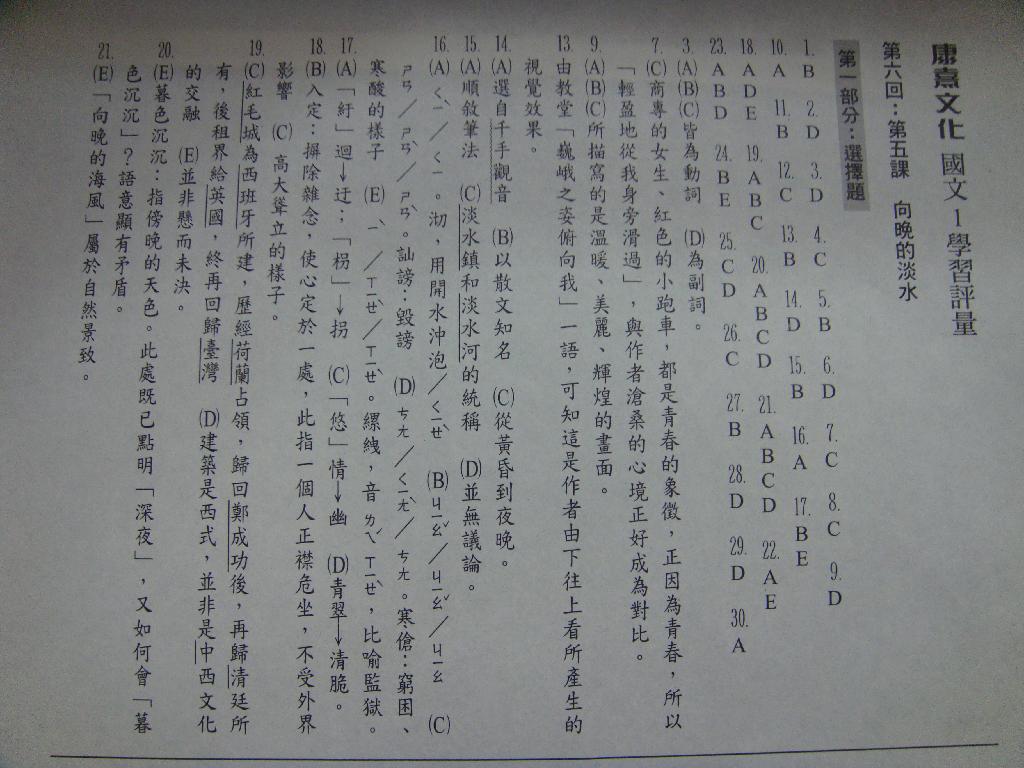 康熹文化 國文1學習評量
第六回：第五課 向晚的淡水
第一部分：選擇題
1. B 2. D 3. D 4. C 5. B 6. D 7. C 8. C 9. D
10. A 11. B 12. C 13. B 14. D 15. B 16. A 17. BE
18. ADE 19. ABC 20. ABCD 21. ABCD 22. AE
23. ABD 24. BE 25. CD 26. C 27. B 28. D 29. D 30. A
3. (A)(B)(C)皆為動詞 (D)為副詞。
7. (C)商專的女生、紅色的小跑車，都是青春的象徵，正因為青春，所以
「輕盈地從我身旁滑過」，與作者滄桑的心境正好成為對比。
9. (A)(B)(C)所描寫的是溫暖、美麗、輝煌的畫面。
13. 由教堂「巍峨之姿俯向我」一語，可知這是作者由下往上看所產生的
視覺效果。
14. (A)選自千手觀音 (B)以散文知名 (C)從黃昏到夜晚。
15. (A)順敘筆法 (C)淡水鎮和淡水河的統稱 (D)並無議論。
16. (A)ㄑㄧˋ／ㄑㄧ。沏，用開水沖泡／ㄑㄧㄝˋ (B)ㄐㄧㄠˇ／ㄐㄧㄠˇ／ㄐㄧㄠ (C)
ㄕㄢ／ㄕㄢˋ／ㄕㄢˋ。訕謗：毀謗 (D)ㄘㄤ／ㄑㄧㄤˋ／ㄘㄤ。寒傖：窮困、
寒酸的樣子 (E)ㄧˋ／ㄒㄧㄝˋ／ㄒㄧㄝˋ。縲絏，音ㄌㄟˊ ㄒㄧㄝˋ，比喻監獄。
17. (A)「紆」迴→迂；「柺」→拐 (C)「悠」情→幽 (D)青翠→清脆。
18. (B)入定：摒除雜念，使心定於一處，此指一個人正襟危坐，不受外界
影響 (C)高大聳立的樣子。
19. (C)紅毛城為西班牙所建，歷經荷蘭占領，歸回鄭成功後，再歸清廷所
有，後租界給英國，終再回歸臺灣 (D)建築是西式，並非是中西文化
的交融 (E)並非懸而未決。
20. (E)暮色沉沉：指傍晚的天色。此處既已點明「深夜」，又如何會「暮
色沉沉」？語意顯有矛盾。
21. (E)「向晚的海風」屬於自然景致。